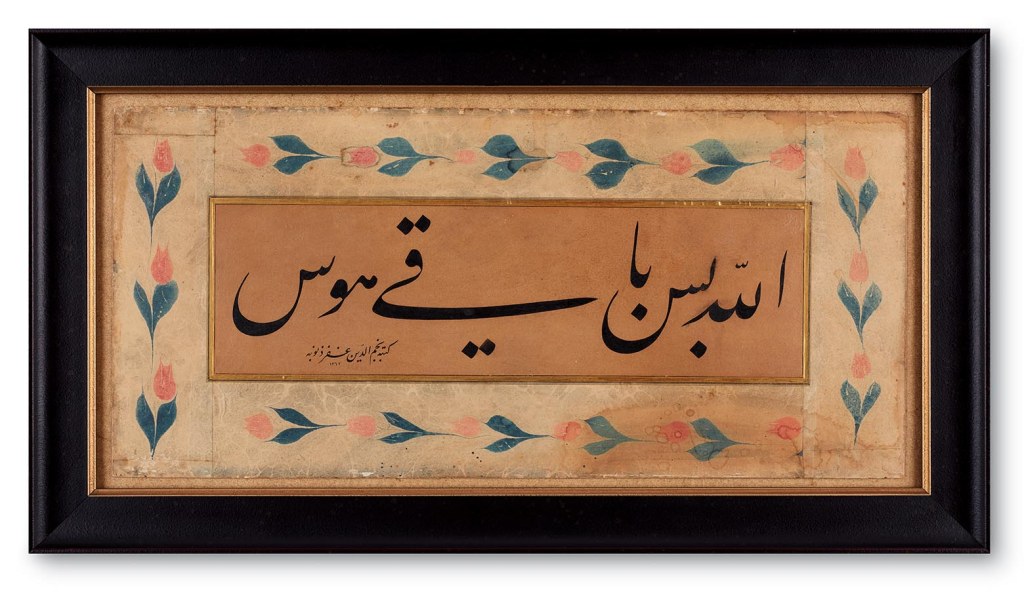 الله بس باقی هوس
كتبه نجم الدین غفر ذنوبه